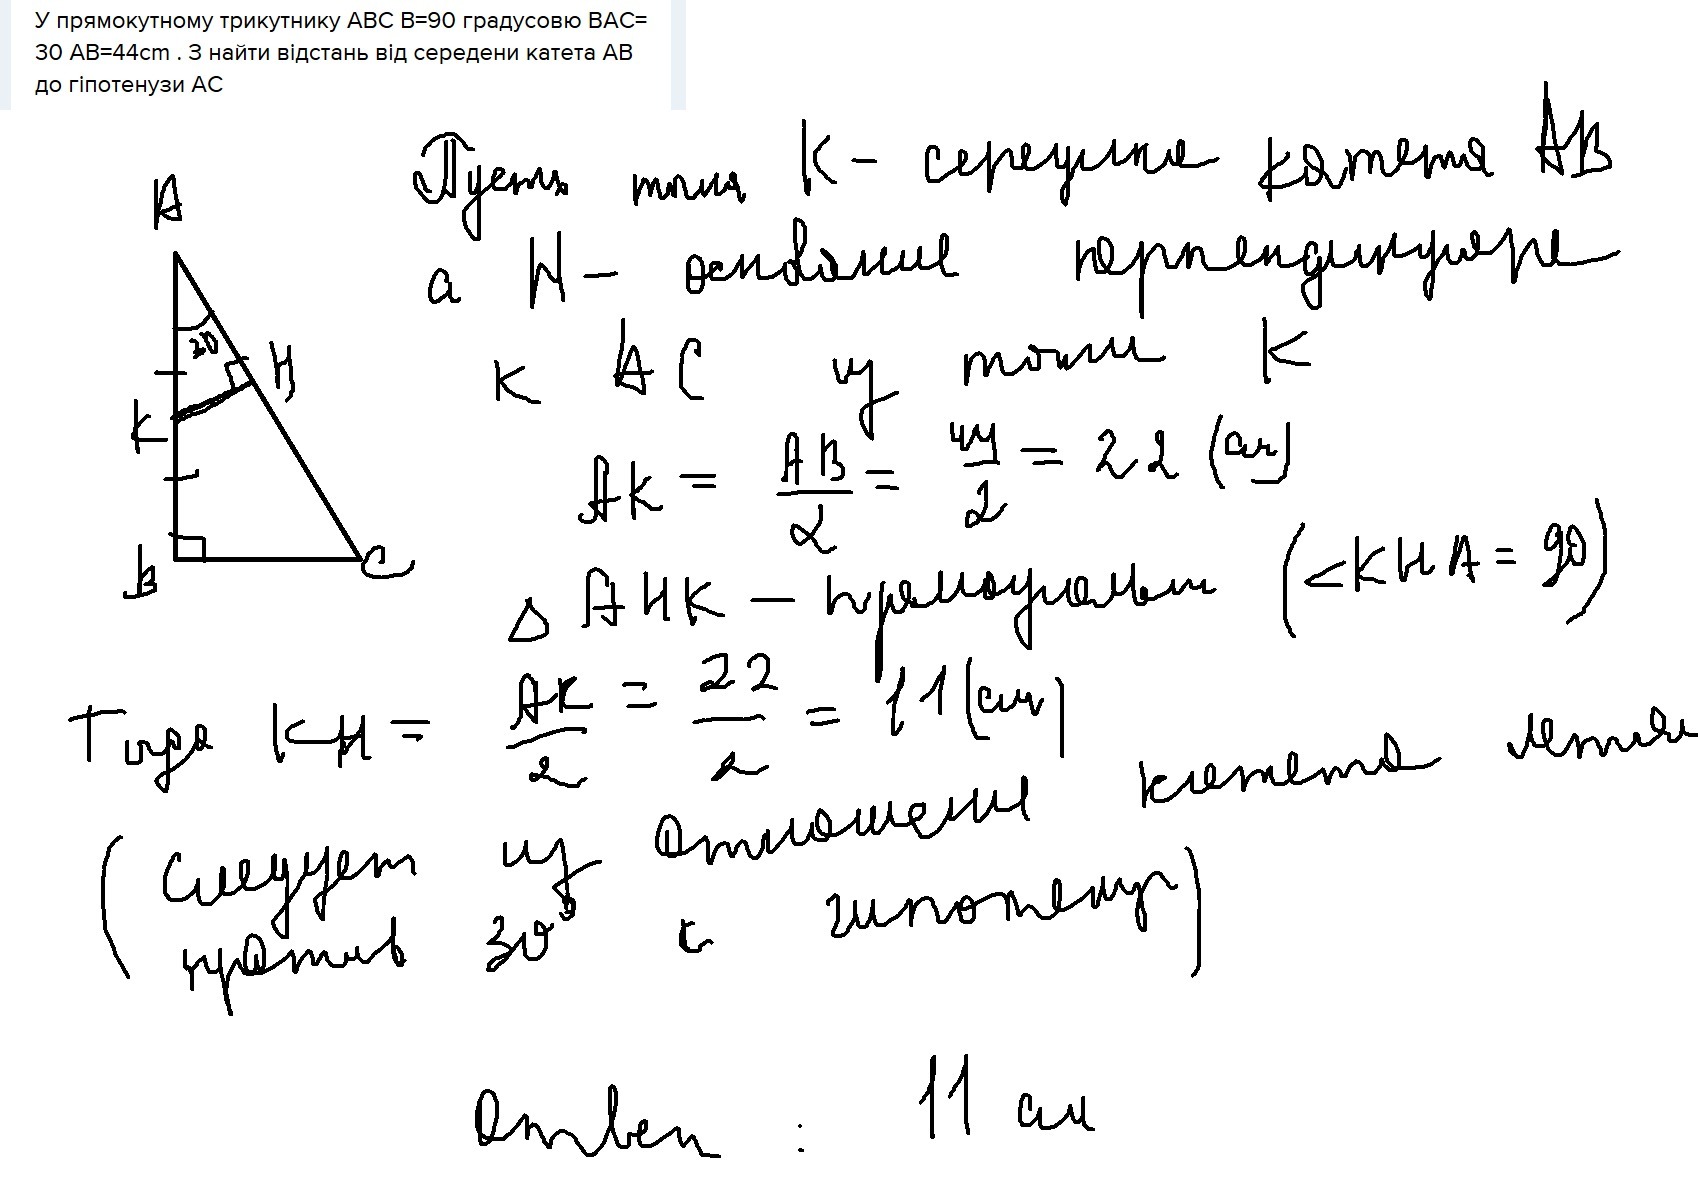 У прямокутному трикутнику АВС В=90 градусовю ВАС=
30 АВ=44cm . З найти відстань від середени катета АВ
до гіпотенузи АС
A
30
H
K
B
C
Пусть точка K - середина катета AB
а H - основание перпендикуляра
к AC из точки K
AK = AB/2 = 44/2 = 22 (см)
Δ AHK - прямоугольн (<KHA = 90)
Тогда KH = AK/2 = 22/2 = 11 (см)
(Следует из отношение катета
против 30° к гипотенузе)
Ответ : 11 см